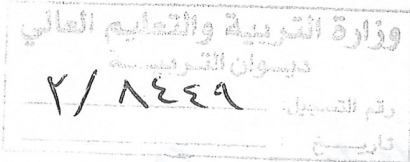 وزارة التربية والتعليم العالي
ديوان التربيـــة
رقم التسجيل ٢/٨٤٤٩
تاريـــخ